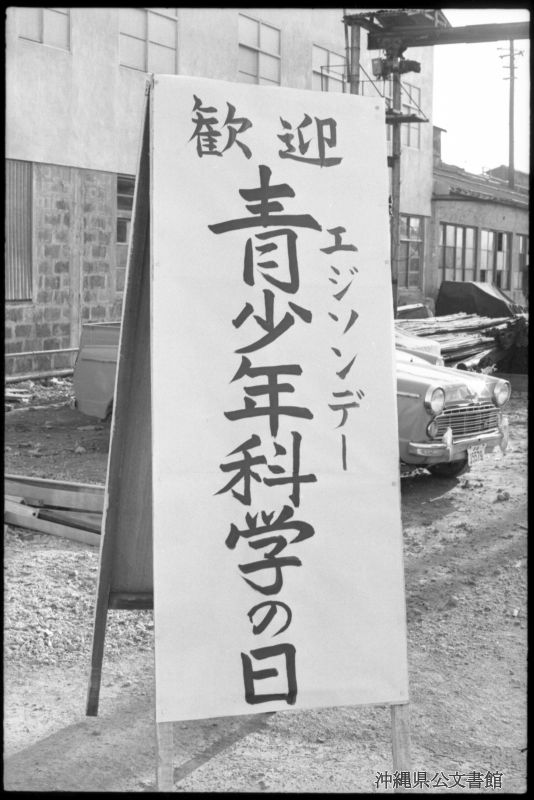 歓迎
青少年科学の日
エジソンデー
沖縄県公文書館